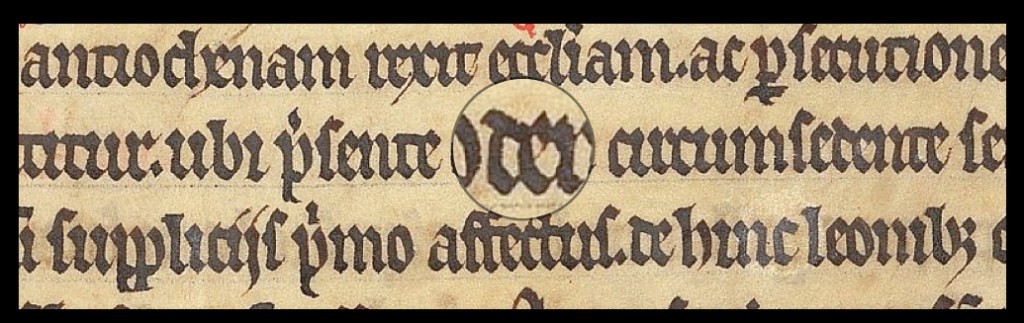 antiochenam rexit eccl̄iam. ac ꝑsecutione
titur. ubi p̓sente circumsedente se
suppliciis pⁱmo affectus. de hinc leonibꝫ